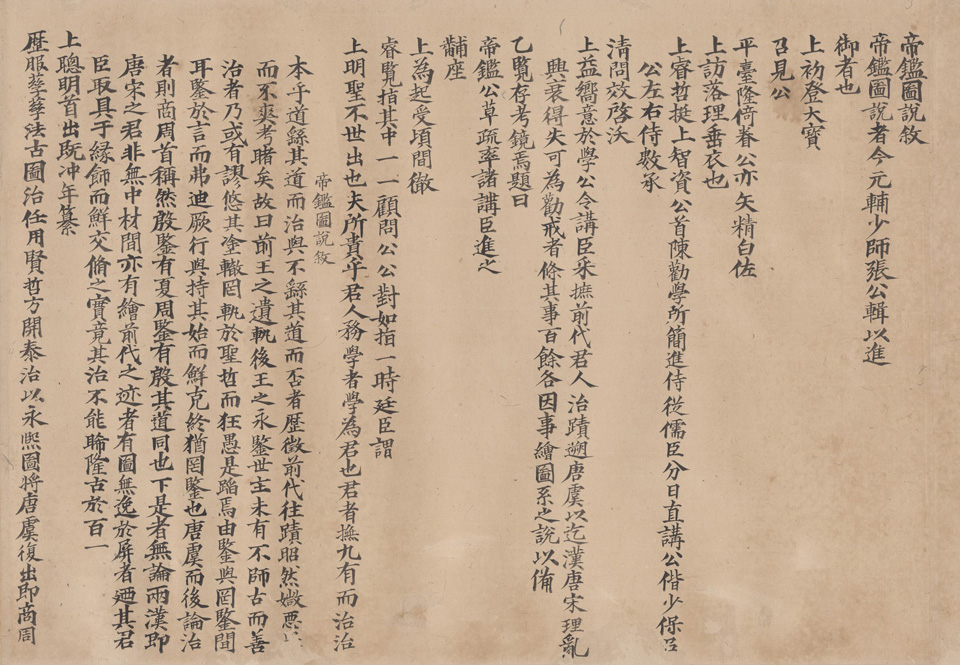 帝鑑圖說敘
帝鑑圖說者今元輔少師張公輯以進
御者也
上初登大寶
召見公
平臺隆倚眷公亦矢精白佐
上訪落理垂衣也
上睿哲挺上智資公首陳勸學所簡進侍從儒臣分日直講公偕少保呂
公左右侍數承
清問效啓沃
上益嚮意於學公令講臣采摭前代君人治蹟遡唐虞以迄漢唐宋理亂
興衰得失可為勸戒者條其事百餘各因事繪圖系之說以備
乙覽存考鏡焉題曰
帝鑑公草疏率諸講臣進之
黼座
上為起受頃間徹
睿覽指其中一一顧問公公對如指一時廷臣謂
上明聖不世出也夫所貴乎君人務學者學為君也君者撫九有而治治
帝鑑圖說敘
本乎道繇其道而治與不繇其道而否者歷徵前代往蹟昭然媺惡
而不爽考睹矣故曰前王之遺軌後王之永鑒世主未有不師古而善
治者乃或有謬悠其塗轍罔軌於聖哲而狂愚是蹈焉由鑒與罔鑒聞
耳鑒於言而弗迪厥行與持其始而鮮克終猶罔鑒也唐虞而後論治
者則商周首稱然殷鑒有夏周鑒有殷其道同也下是者無論兩漢即
唐宋之君非無中材間亦有繪前代之迹者有圖無逸於屏者廼其君
臣取具于緣飾而鮮交脩之實竟其治不能睎隆古於百一
上聰明首出既沖年纂
歷服孳孳法古圖治任用賢哲方開泰治以永熙圖將唐虞復出即商周